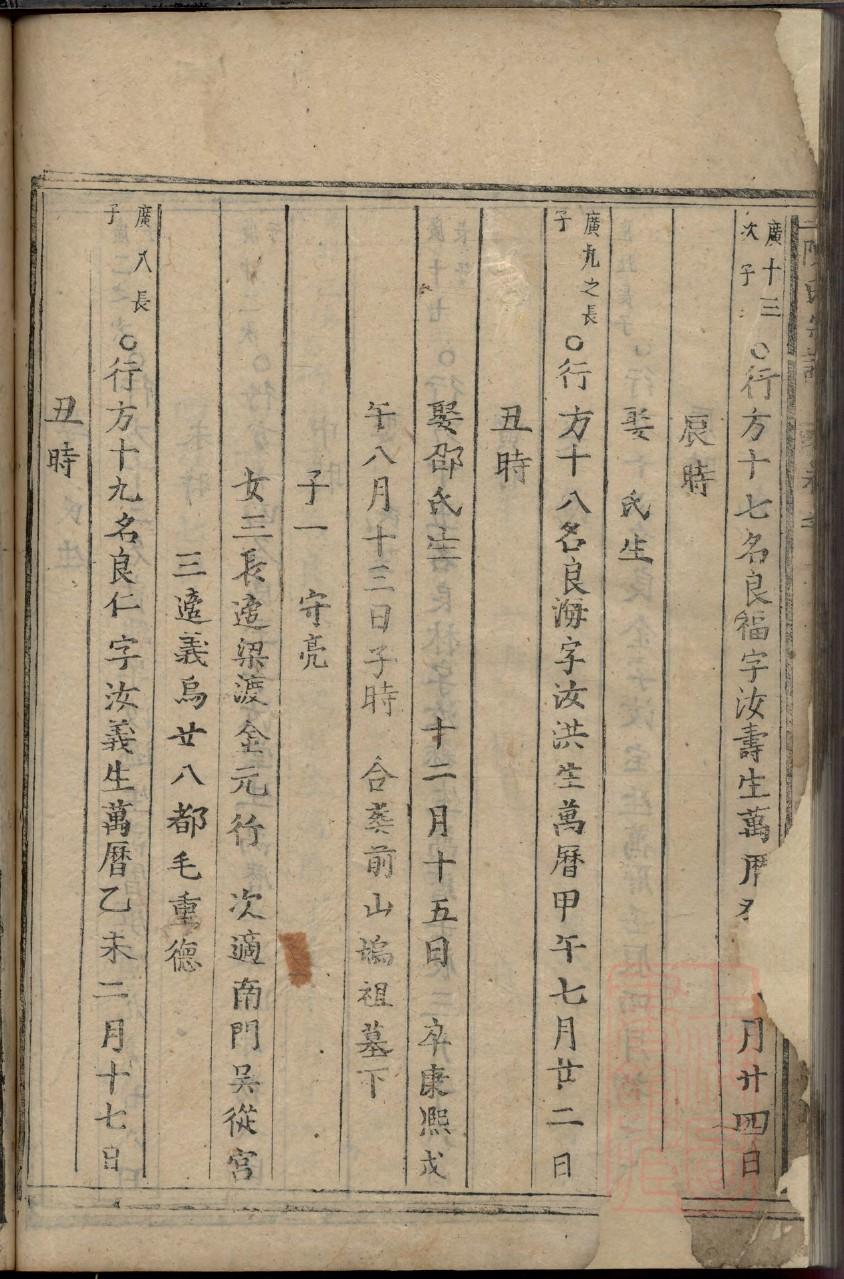 廣十三
次子
○行方十七名良福字汝壽生萬曆
月廿四日
辰時
娶 氏生
廣九之長
子
○行方十八名良海字汝洪生萬曆甲午七月廿二日
丑時
娶邵氏生 十二月十五日 卒康熈戊
午八月十三日子時 合葬前山塢祖墓下
子一 守亮
女三長適梁渡金元行 次適南門吴從宮
三適義烏廿八都毛重德
廣八長
子
○行方十九名良仁字汝義生萬曆乙未二月十七日
丑時